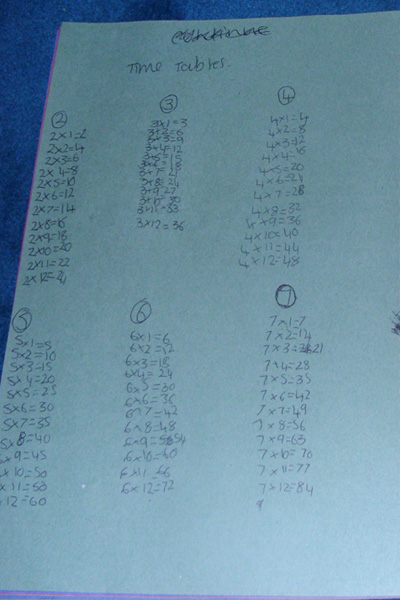 Time Tables.
2
2x1=2
2x2=4
2x3=6
2x4=8
2x5=10
2x6=12
2x7=14
2x8=16
2x9=18
2x10=20
2x11=22
2x12=24
3
3x1=3
3x2=6
3x3=9
3x4=12
3x5=15
3x6=18
3x7=21
3x8=24
3x9=27
3x10=30
3x11=33
3x12=36
4
4x1=4
4x2=8
4x3=12
4x4=16
4x5=20
4x6=24
4x7=28
4x8=32
4x9=36
4x10=40
4x11=44
4x12=48
5
5x1=5
5x2=10
5x3=15
5x4=20
5x5=25
5x6=30
5x7=35
5x8=40
5x9=45
x10=50
x11=50
12=60
6
6x1=6
6x2=12
6x3=18
6x4=24
6x5=30
6x6=36
6x7=42
6x8=48
6x9=54
6x10=60
6x11=66
6x12=72
7
7x1=7
7x2=14
7x3=21
7x4=28
7x5=35
7x6=42
7x7=49
7x8=56
7x9=63
7x10=70
7x11=77
7x12=84